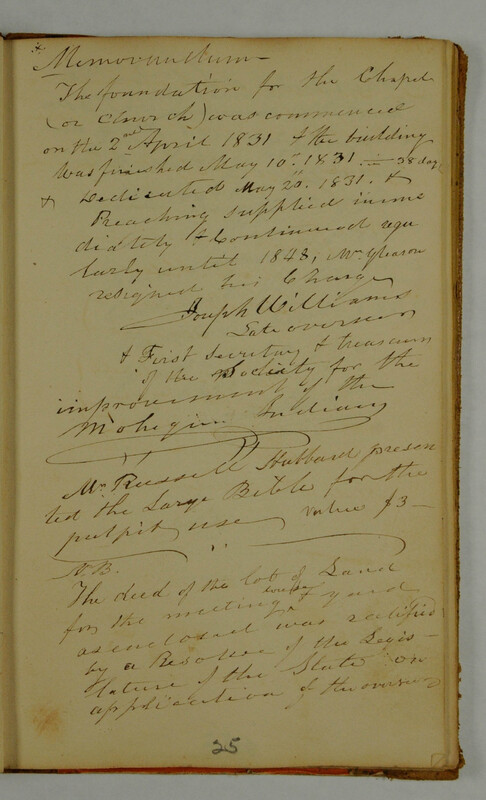 Memorandum
The foundation for the Chapel
(or Church) was commenced
on the 2nd April 1831 & the building
was finished May 10th 1831. — 38 days
& dedicated May 20. 1831. &
Preaching supplied imme
diately & Continued regu
larly until 1848, Mr. Gleason
resigned his Charge
Joseph Williams
Late overseer
& First Secretary & treasurer
of the Society for the
improvement of the
Mohegan Indians
Mr. Russell Hubbard presen
ted the Large Bible for the
pulpit use value $3—
N.B.
The deed of the lot of Land
house
for the meeting & yard
as enclosed was ratified
by a Resolve of the Legis-
lature of the State on
application of the overseer
25